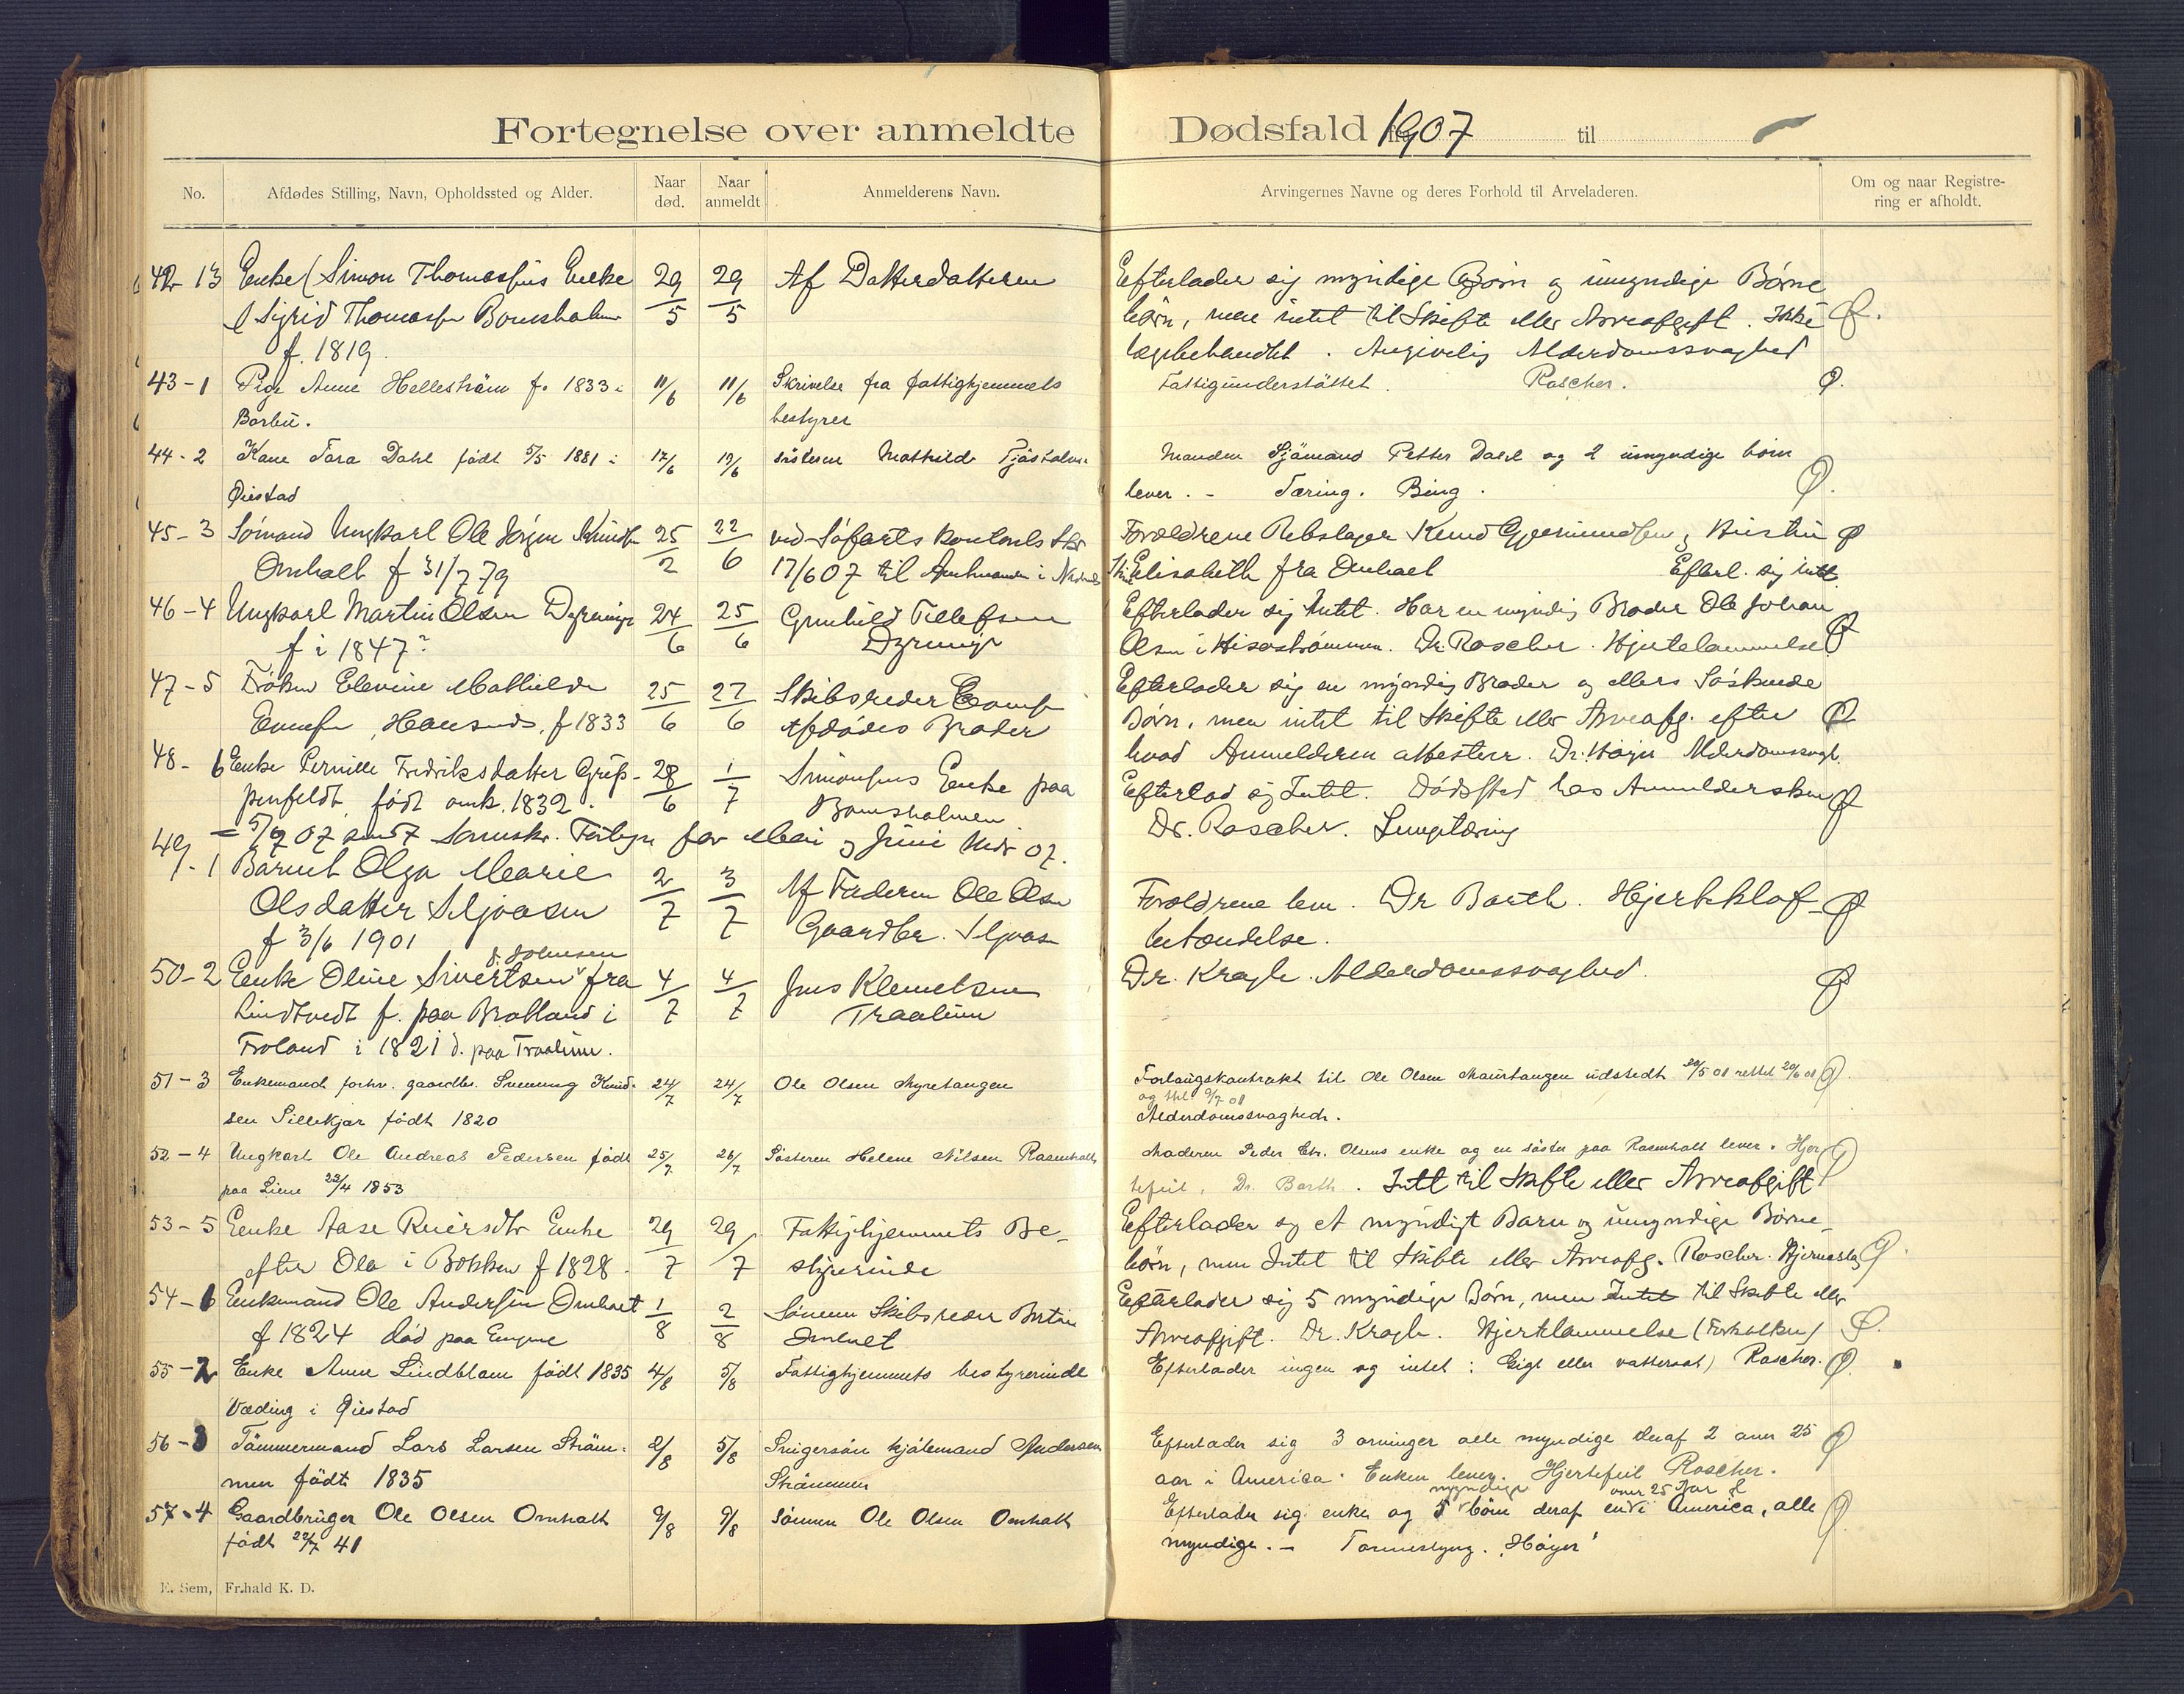 Fortegnelse over anmeldte Dødsfald i 1907 til
No.
Afdødes Stilling, Navn, Opholdssted og Alder.
Naar død.
Naar anmeldt
Anmelderens Navn.
Arvingernes Navne og deres Forhold til Arveladeren.
Om og naar Registrering er afholdt.
42-13 Enke (Simon Thomassens Enke 29/5 29/5 Af Datterdatteren Efterlader sig myndige Børn og umyndige Børne
Sigrid Thomassen Bomsholmen børn, men intet til Skifte eller Arveafgift. Ikke
f. 1819. lægebehandlet. Angivelig Alderdomssvaghed
43-1 Pige Anne Hellestrøm f. 1833 11/6 11/6 Skrivelse fra fattighjemmets Fattigunderstøttet. Rascher.
Barbu. bestyrer
44-2 Kone Tara Dahl født 5/5 1881 17/6 19/6 søsteren Mathilde Manden Sjømand Petter Dahl og 2 umyndige børn
Øiestad lever. - Tæring. Bing.
45-3 Sømand Ungkarl Ole Jørgen Knudsen 25/2 22/6 ved Søfartskontorets Skr Forældrene Rebslager Knud Gjermundsen og Hustru
Omholt f 31/7 79 17/6 07 til Amtmanden i Nedenes Elisabeth fra Omholt Efterl. sig intet
46-4 Ungkarl Martin Olsen Dyrening 24/6 25/6 Gunhild Tellefsen Efterlader sig Intet. Har en myndig Broder Ole Johan
f i 1847? Olsen i Hisøstrømmen. Dr. Rascher. Hjertelammelse
47-5 Frøken Elevine Mathilde 25/6 27/6 Skibsreder Efterlader sig en myndig Broder og ellers Søskende
f 1833 Afdødes Broder Børn, men intet til Skifte eller Arveafg. efter
hvad Anmelderen attesterer. Dr. Høyer Alderdomssvagh.
48-6 Enke Pernille Fredriksdatter Grip- 28/6 1/7 Simonsens Enke paa Efterlod sig Intet. Dødssted hos Anmeldersken
penfeldt født omk. 1832. Bomsholmen Dr. Rascher. Lungetæring
= 5/7 07 sendt Fortegn for Mai og Juni Mdr 07.
49-1 Barnet Olga Marie 2/7 3/7 Af Faderen Ole Olsen Forældrene lever. Dr Barth. Hjerteklaf-
Olsdatter Seljeaasen Gaardbr. betændelse.
f 3/6 1901
f. Johnsen
50-2 Enke Oline Sivertsen fra 4/7 4/7 Jens Klemetsen Dr. Kragh. Alderdomssvaghed.
Lindtvedt f. paa Bratland i Traalum
Froland i 1821 d. paa Traalum.
51-3 Enkemand forhv. gaardbr. Svenning Knud- 24/7 24/7 Ole Olsen Myretangen Forlaugskontrakt til Ole Olsen udstedt 20/5 01 rettet 20/6 01
og thl 9/7 01
sen Sillekjær født 1820 Alderdomssvaghed.
52-4 Ungkarl Ole Andreas Pedersen født 25/7 26/7 Søsteren Helene Nilsen Rasmholt Moderen Peder Chr. Olsens enke og en søster paa Rasmholt lever. Hjer
paa Liene 22/4 1853 tefeil. Dr. Barth. Intet til Skifte eller Arveafgift
53-5 Enke Aase Reiersdtr Enke 29/7 29/7 Fattighjemmets Be- Efterlader sig et myndigt Barn og umyndige Børne-
efter Ola i Bakken f 1828. styrerinde børn, men Intet til Skifte eller Arveafg. Rascher. Hjerneslag
54-6 Enkemand Ole Andersen Omholt 1/8 2/8 Sønnen Skibsreder Efterlader sig 5 myndige Børn, men Intet til Skifte eller
f 1824 død paa Engene Omholt Arveafgift. Dr. Kragh. Hjertelammelse (Forkalken)
55-2 Enke Anne Lindblom født 1835 4/8 5/8 Fattighjemmets bestyrerinde Efterlader ingen og intet: Gigt eller vattersot) Rascher.
Væding i Øiestad
56-3 Tømmermand Lars Larsen Strøm- 2/8 5/8 Svigersøn kjølemand Andersen Efterlader sig 3 arvinger alle myndige deraf 2 over 25
men født 1835 Strømmen aar i America. Enken lever. Hjertefeil Rascher.
myndige over 25 Aar
57-4 Gaardbruger Ole Olsen Omholt 9/8 9/8 Sønnen Ole Olsen Omholt Efterlader sig enke og 5 børn deraf en i America, alle
født 22/7 41 myndige. - Tarmeslyng. Høyer
E. Sem, Fr.hald K. D.